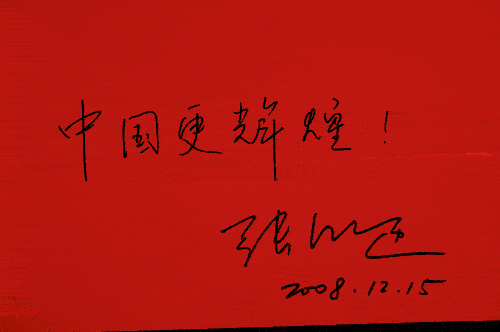 中国更辉煌!
2008.12.15